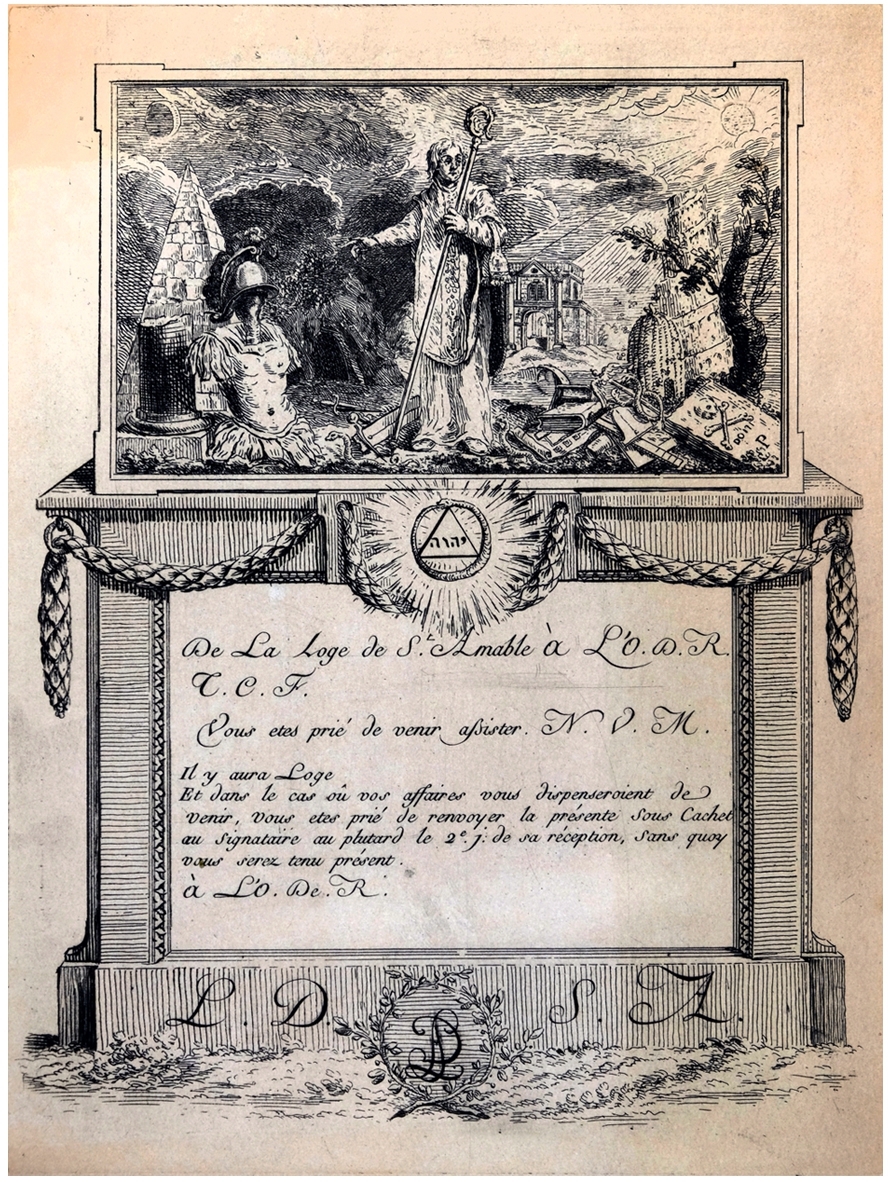 יהוה
De La Loge de S.t Amable à L'O. D. R.
T. C. F.
Vous etes prié de venir assister. N. V. M.
Il y aura Loge
Et dans le cas où vos affaires vous dispenseroient de
venir, vous etes prié de renvoyer la présente sous Cachet
au signataire au plutard le 2.e j: de sa réception, sans quoy
vous serez tenu présent.
à L'O. De. R.
L. D. S. A.